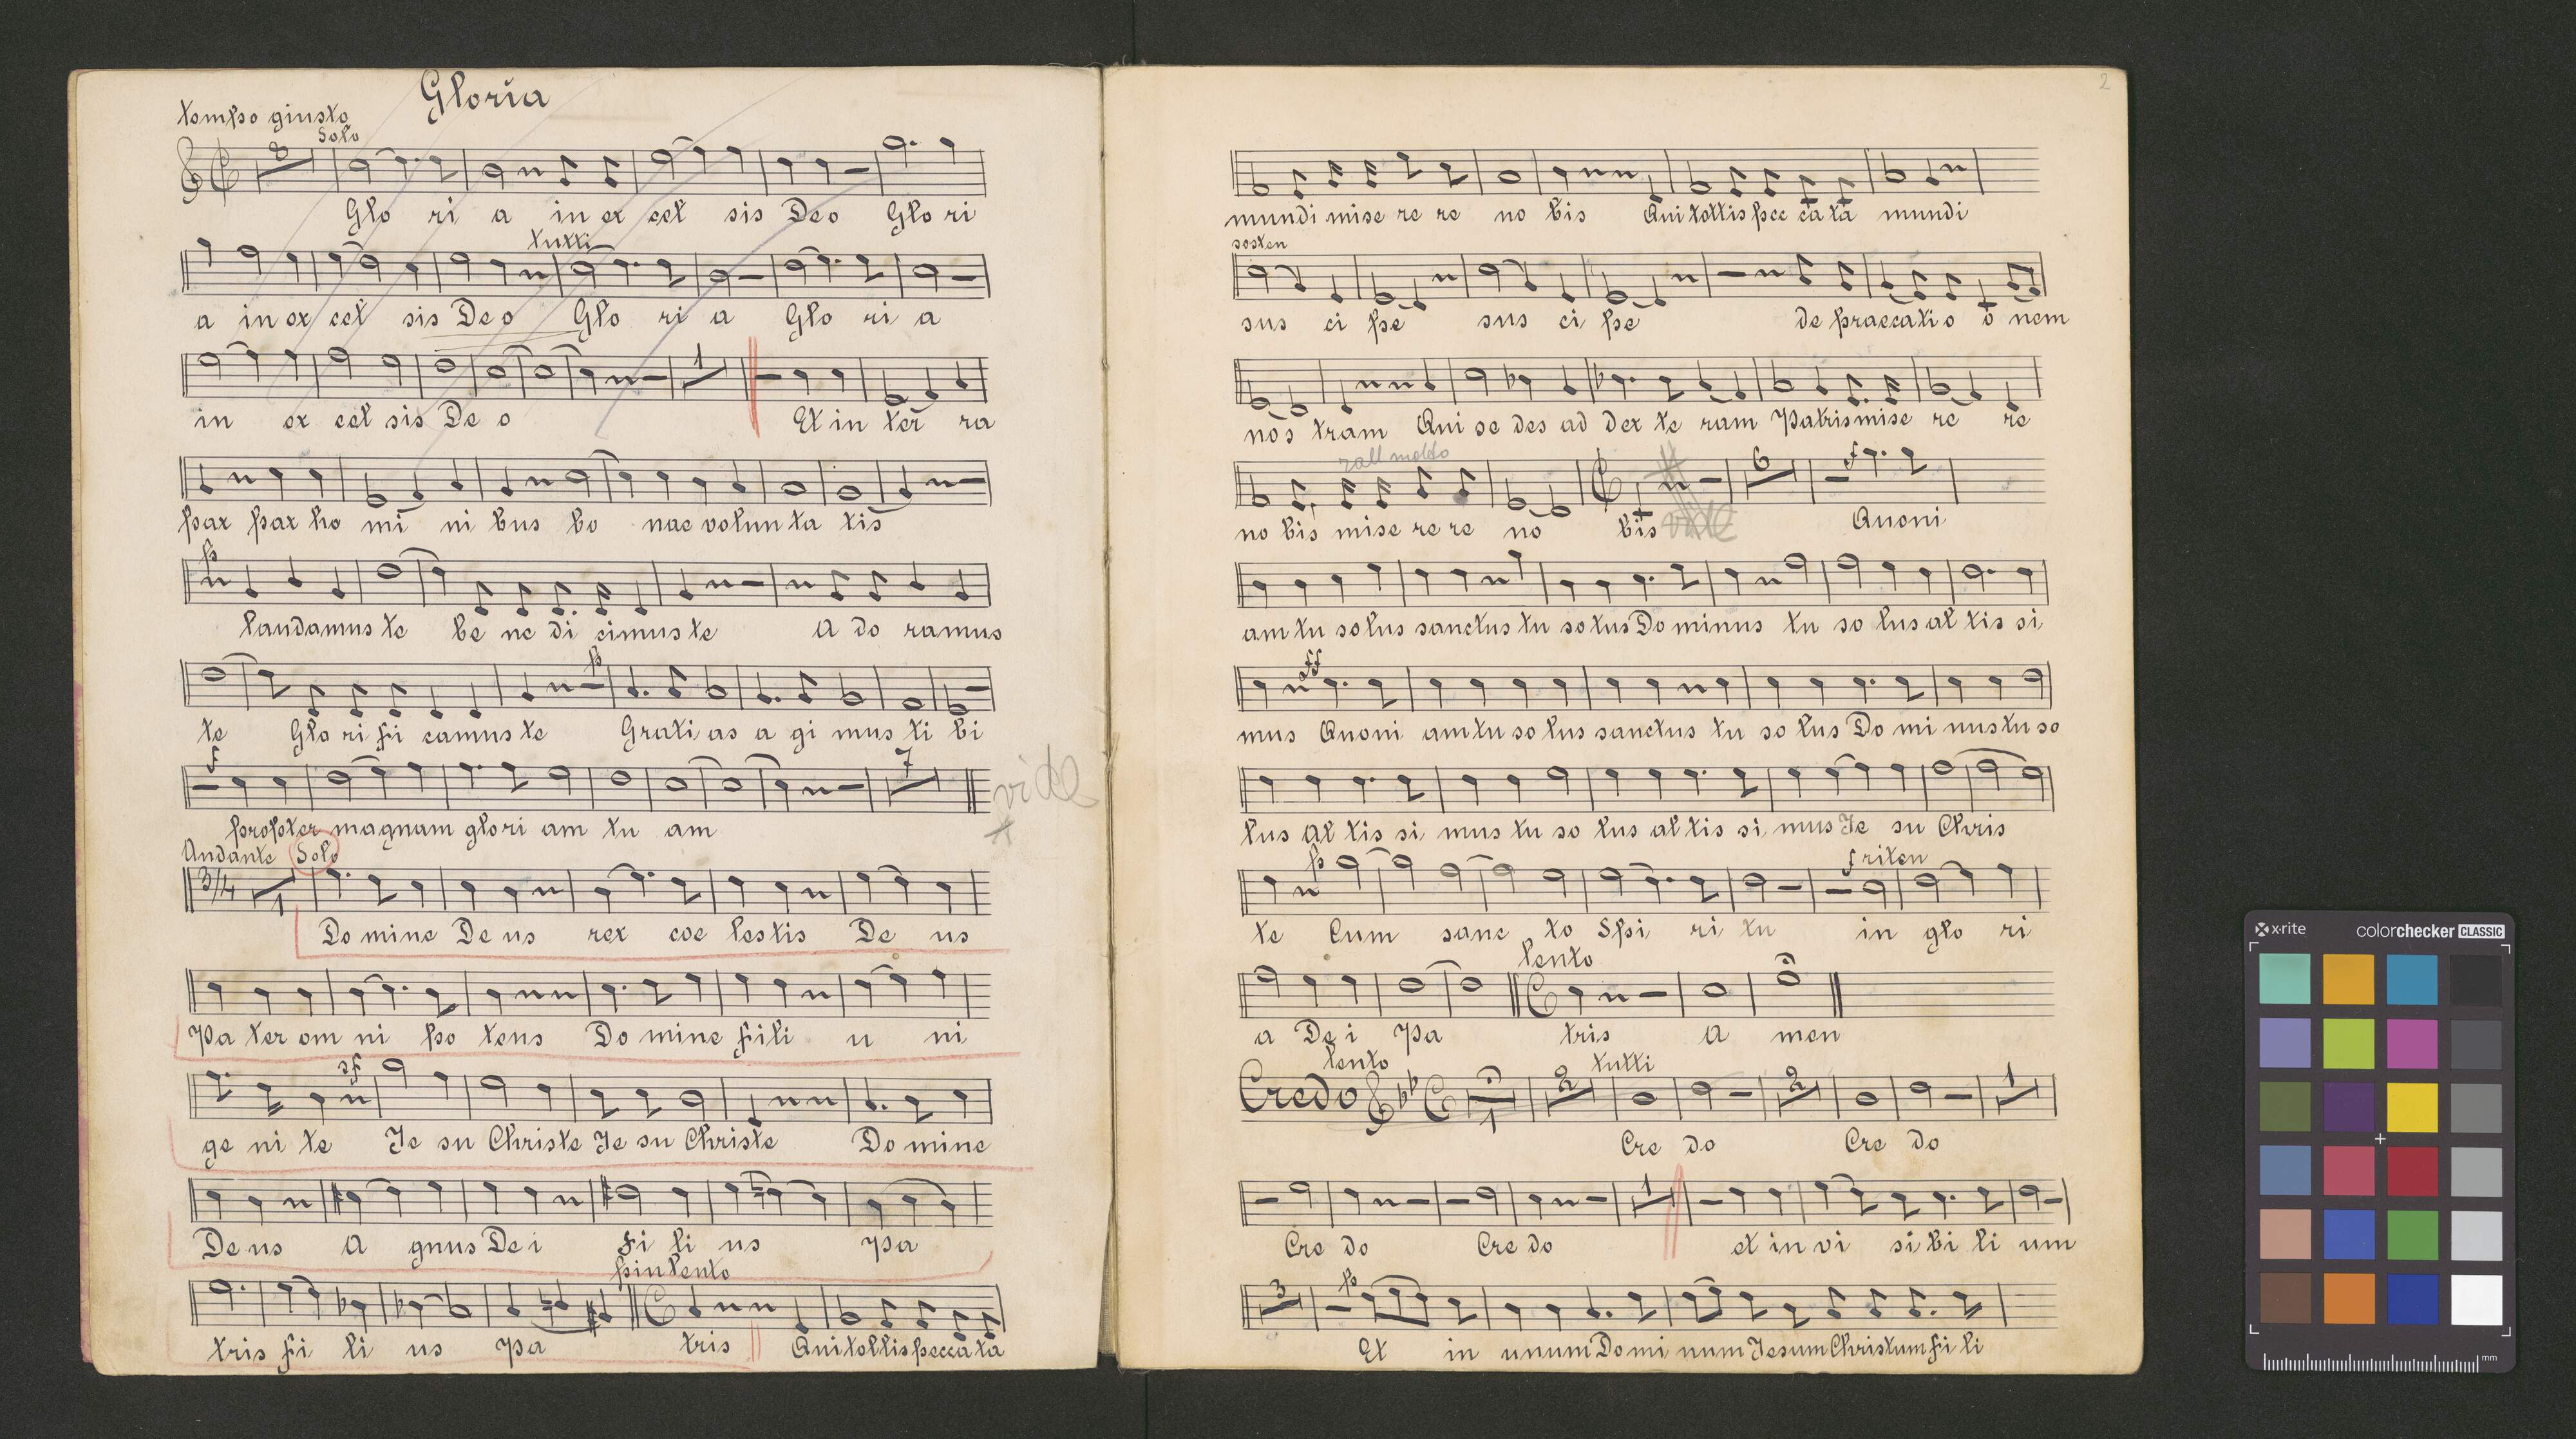 Gloria
tempo giusto
Solo
8
Glo ri a in ex cel sis Deo Glo ri
tutti
a in ex cel sis De o Glo ri a Glo ri a
1
in ex cel sis De o Et in ter ra
pax pax ho mi ni bus bo nae volun ta tis
p
laudamus te be ne di cimus te A do ramus
p
te Glo ri fi camus te Grati as a gi mus ti bi
f 7 vide
propter magnam glori am tu am
Andante Solo
3/4 1
Do mine De us rex coe lestis De us
Pa ter om ni po tens Do mine fili u ni
sf
ge ni te Je su Christe Je su Christe Do mine
De us A gnus De i Fi li us Pa
più lento
tris fi li us Pa tris Qui tollis pecca ta
2
mundi mise re re no bis Qui tollis pec ca ta mundi
sosten
sus ci pe sus ci pe de praecati o o nem
nos tram Qui se des ad dex te ram Patris mise re re
rall molto
6 f
no bis mise re re no bis vide Quoni
am tu solus sanctus tu solus Do minus tu so lus al tis si
ff
mus Quoni am tu so lus sanctus tu so lus Do mi nus tu so
lus Al tis si mus tu so lus al tis si mus Je su Chris
p f riten
te Cum sanc to Spi ri tu in glo ri
lento
a De i Pa tris A men
lento tutti
Credo 1 2 2 1
Cre do Cre do
1
Cre do Cre do et in vi si bi li um
3 p
Et in unum Domi num Jesum Christum fi li
x-rite colorchecker CLASSIC
mm